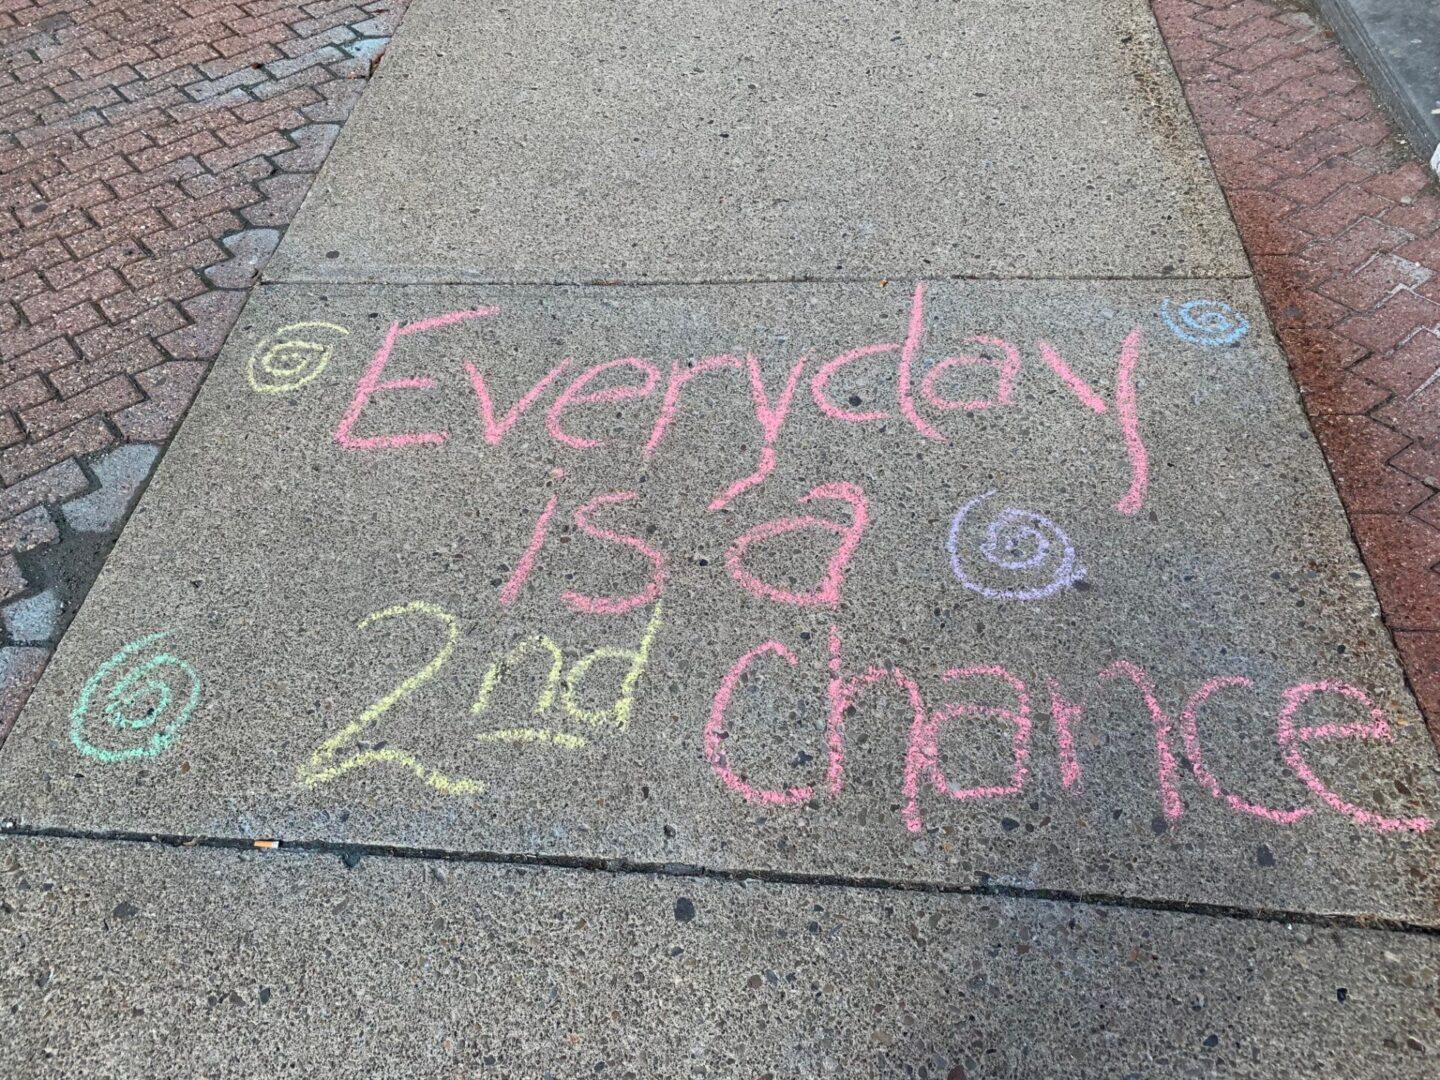 Everyday
is a
2nd chance